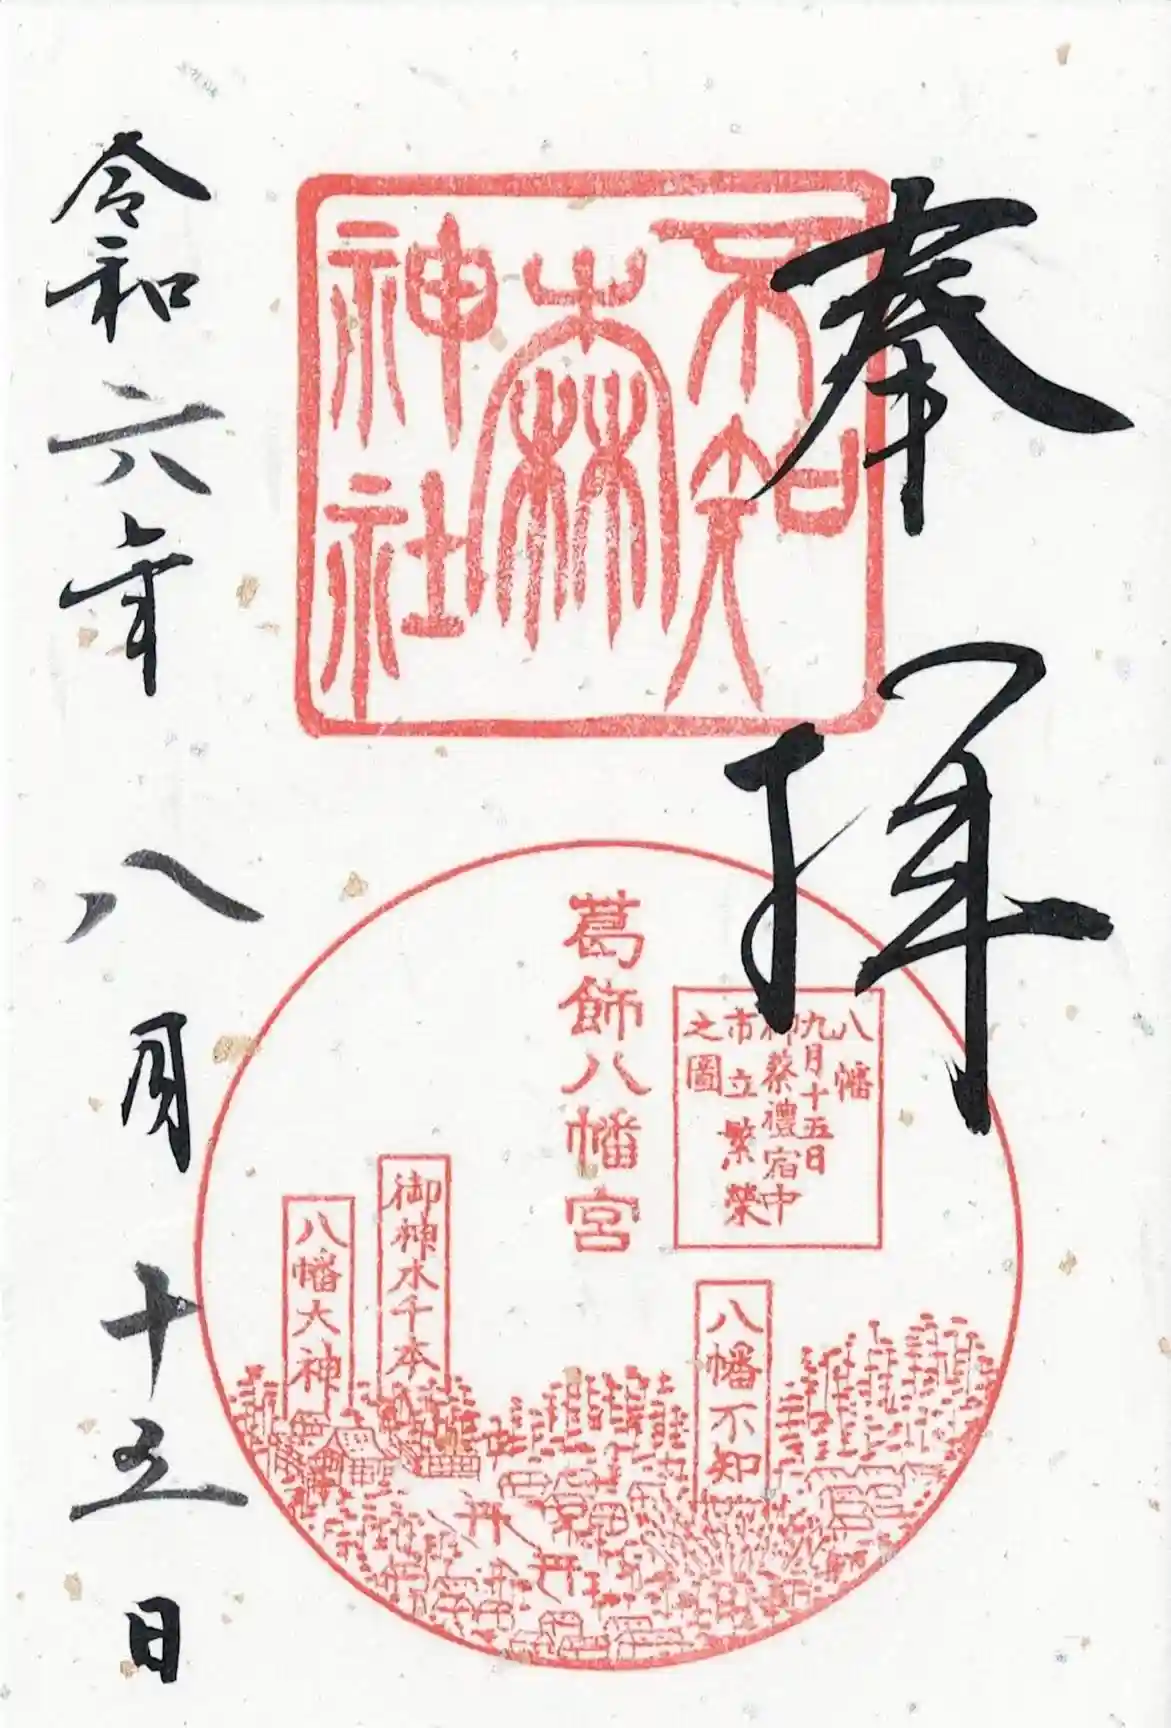 奉拝
不知
森
神社
葛飾八幡宮
八幡
九月十五日
神祭禮宿中
市立繁榮
之圖
八幡不知
御神水千本
八幡大神
令和六年八月十五日